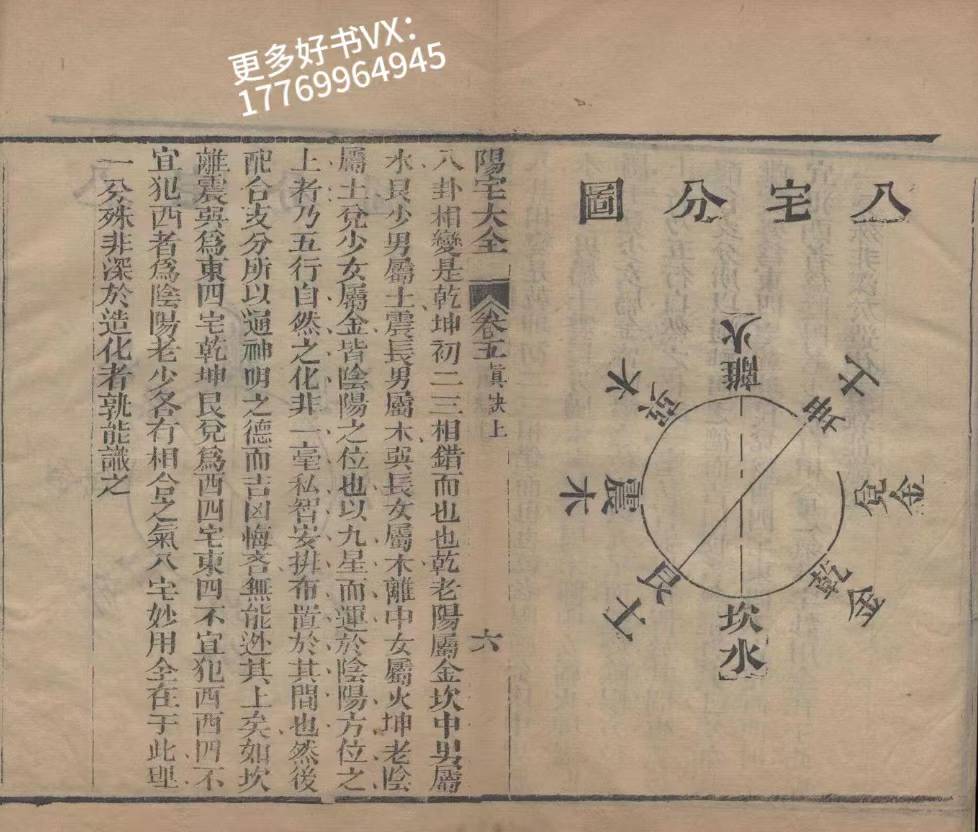 更多好书VX：
17769964945
八宅分圖
離火
坤土
兌金
乾金
坎水
艮土
震木
巽木
陽宅大全 卷五 真訣上 六
八卦相變是乾坤初二三相錯而也也乾老陽屬金坎中男屬
水艮少男屬土震長男屬木巽長女屬木離中女屬火坤老陰
屬土兌少女屬金皆陰陽之位也以九星而運於陰陽方位之
上者乃五行自然之化非一毫私智安排布置於其間也然後
配合支分所以通神明之德而吉凶悔吝無能逃其上矣如坎
離震巽爲東四宅乾坤艮兌爲西四宅東四不宜犯西西四不
宜犯西者爲陰陽老少各有相合之氣八宅妙用全在于此理
一分殊非深於造化者孰能識之